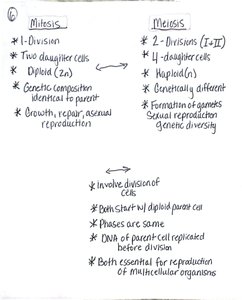 6
Mitosis
* 1-Division
* Two daughter cells
* Diploid (2n)
* Genetic composition
identical to parent
* Growth, repair, asexual
reproduction
Meiosis
* 2-Divisions (I+II)
* 4-daughter cells
* Haploid (n)
* Genetically different
* Formation of gamets
Sexual reproduction
genetic diversity
* Involve division of
cells
* Both Start w/ diploid parent cell
* Phases are same
* DNA of parent cell replicated
before division
* Both essential for reproduction
of multicellular organisms